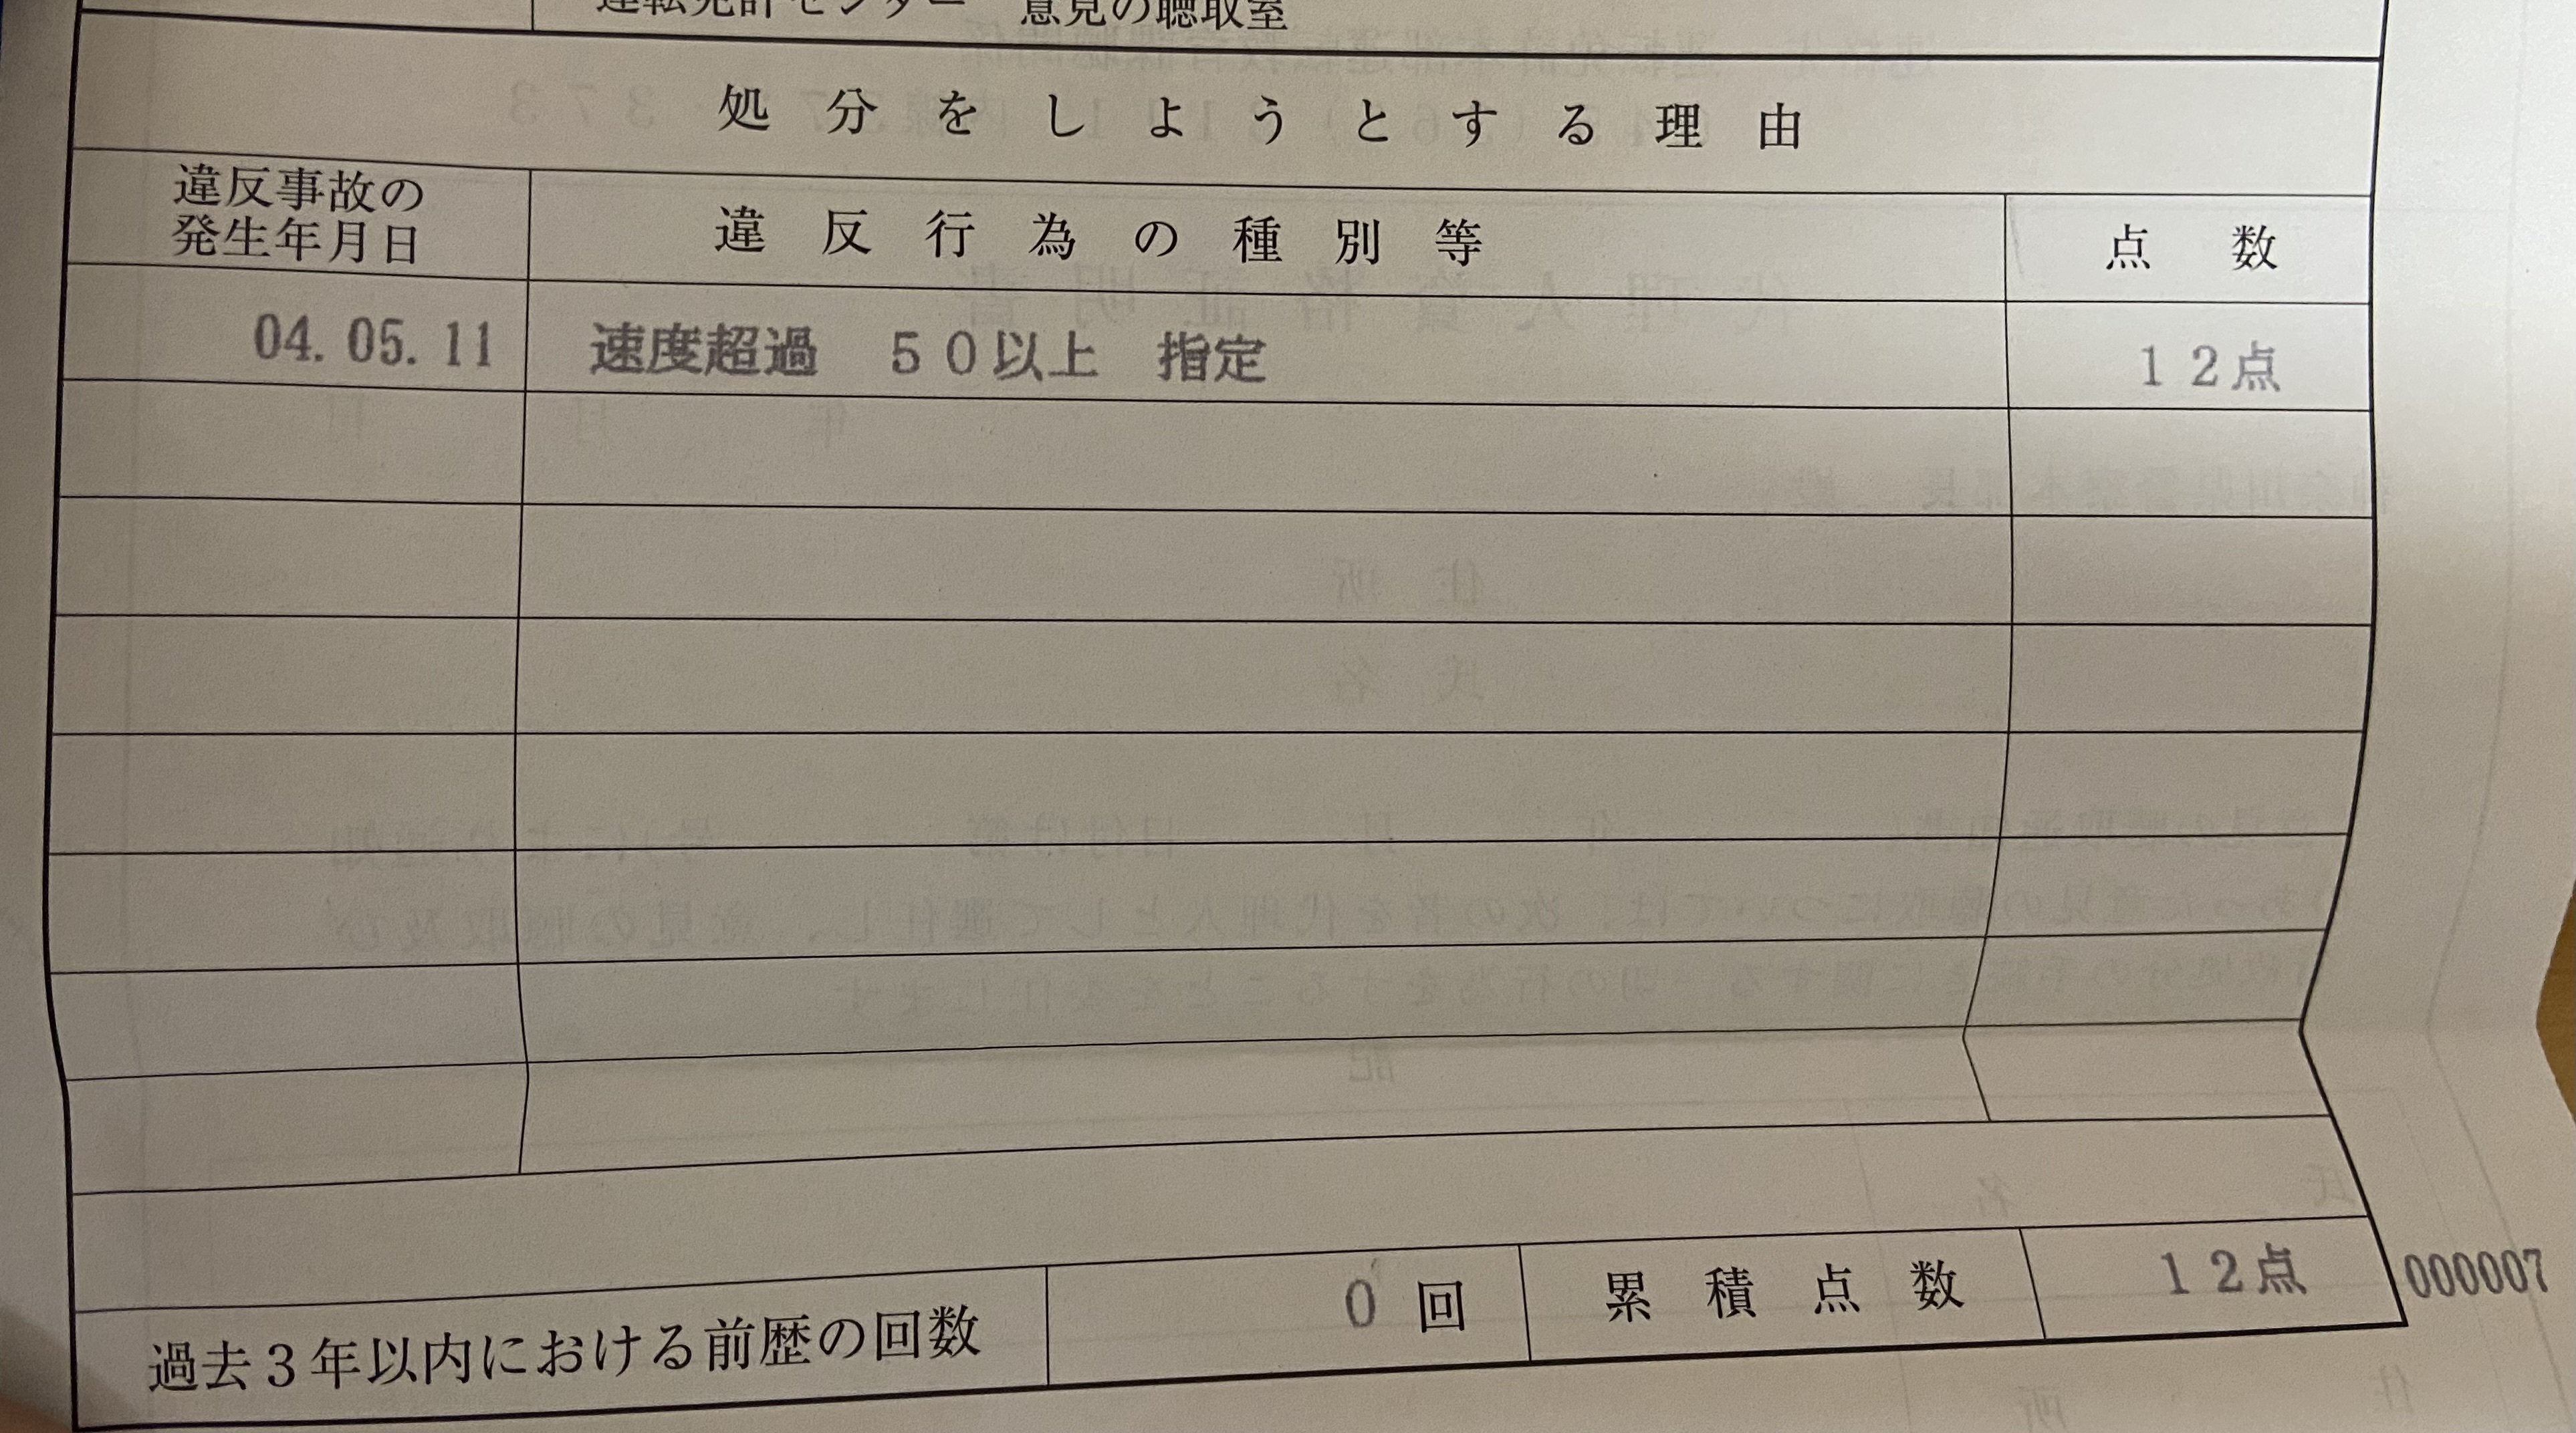 運転免許センター 意見の聴取室
処分をしようとする理由
違反事故の
発生年月日
違反行為の種別等
点数
04.05.11
速度超過 50以上 指定
12点
過去3年以内における前歴の回数
0回
累積点数
12点
000007